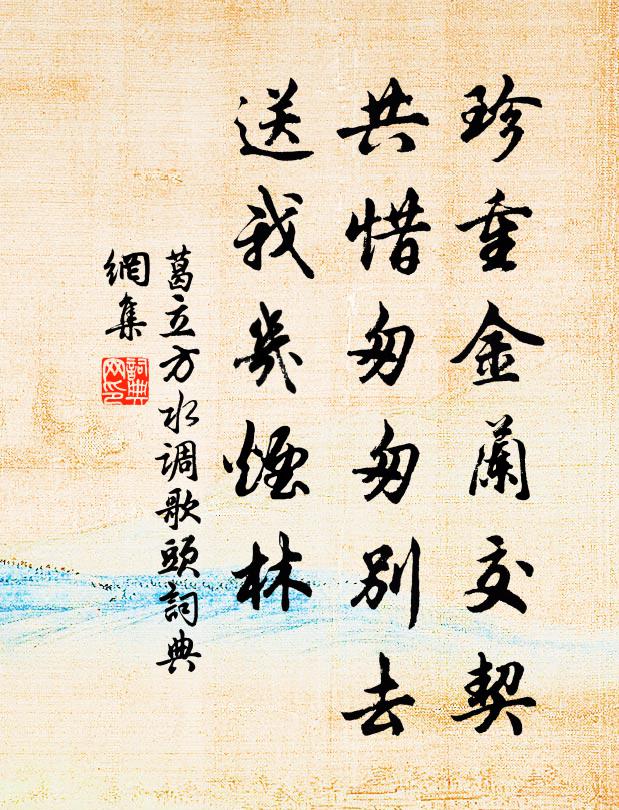 珍重金蘭交契
共惜匆匆別去
送我幾煙林
葛立方水调歌頭詞典
網集
詞典
网印